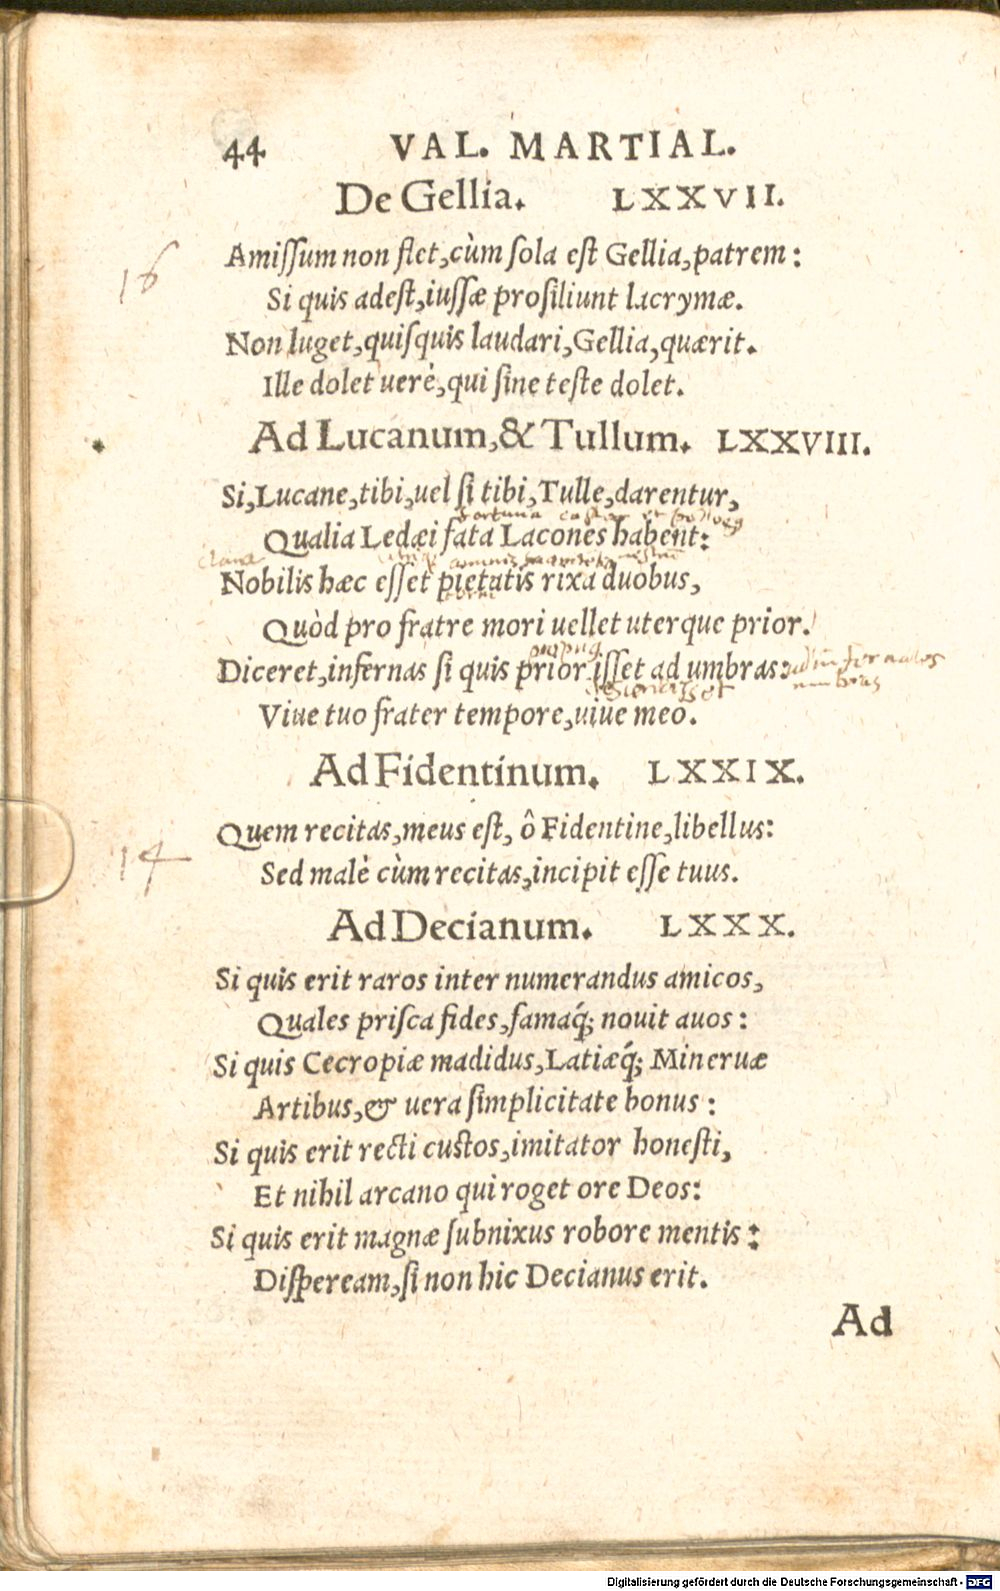 44 VAL. MARTIAL.
De Gellia. LXXVII.
16
Amiſſum non flet, cùm ſola eſt Gellia, patrem:
Si quis adeſt, iuſſæ proſiliunt lacrymæ.
Non luget, quiſquis laudari, Gellia, quærit.
Ille dolet uerè, qui ſine teſte dolet.
Ad Lucanum, & Tullum. LXXVIII.
Si, Lucane, tibi, uel ſi tibi, Tulle, darentur,
fortuna castor et pollux
Qualia Ledæi fata Lacones habent:
Nobilis hæc eſſet pietatis rixa duobus,
Quòd pro fratre mori uellet uterque prior.
Diceret, infernas ſi quis prior iſſet ad umbras:
ad infernales
umbras
Viue tuo frater tempore, uiue meo.
Ad Fidentinum. LXXIX.
Quem recitas, meus eſt, ô Fidentine, libellus:
14
Sed malè cùm recitas, incipit eſſe tuus.
Ad Decianum. LXXX.
Si quis erit raros inter numerandus amicos,
Quales priſca fides, famaq́; nouit auos:
Si quis Cecropiæ madidus, Latiæq́; Mineruæ
Artibus, & uera ſimplicitate bonus:
Si quis erit recti cuſtos, imitator honeſti,
Et nihil arcano qui roget ore Deos:
Si quis erit magnæ ſubnixus robore mentis:
Diſpeream, ſi non hic Decianus erit.
Ad
Digitalisierung gefördert durch die Deutsche Forschungsgemeinschaft - DFG